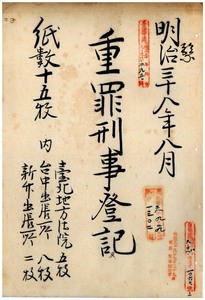 明治三十八年八月
重罪刑事登記
紙数十五枚
内
臺北地方法院 五枚
台中出張所 八枚
新竹出張所 二枚